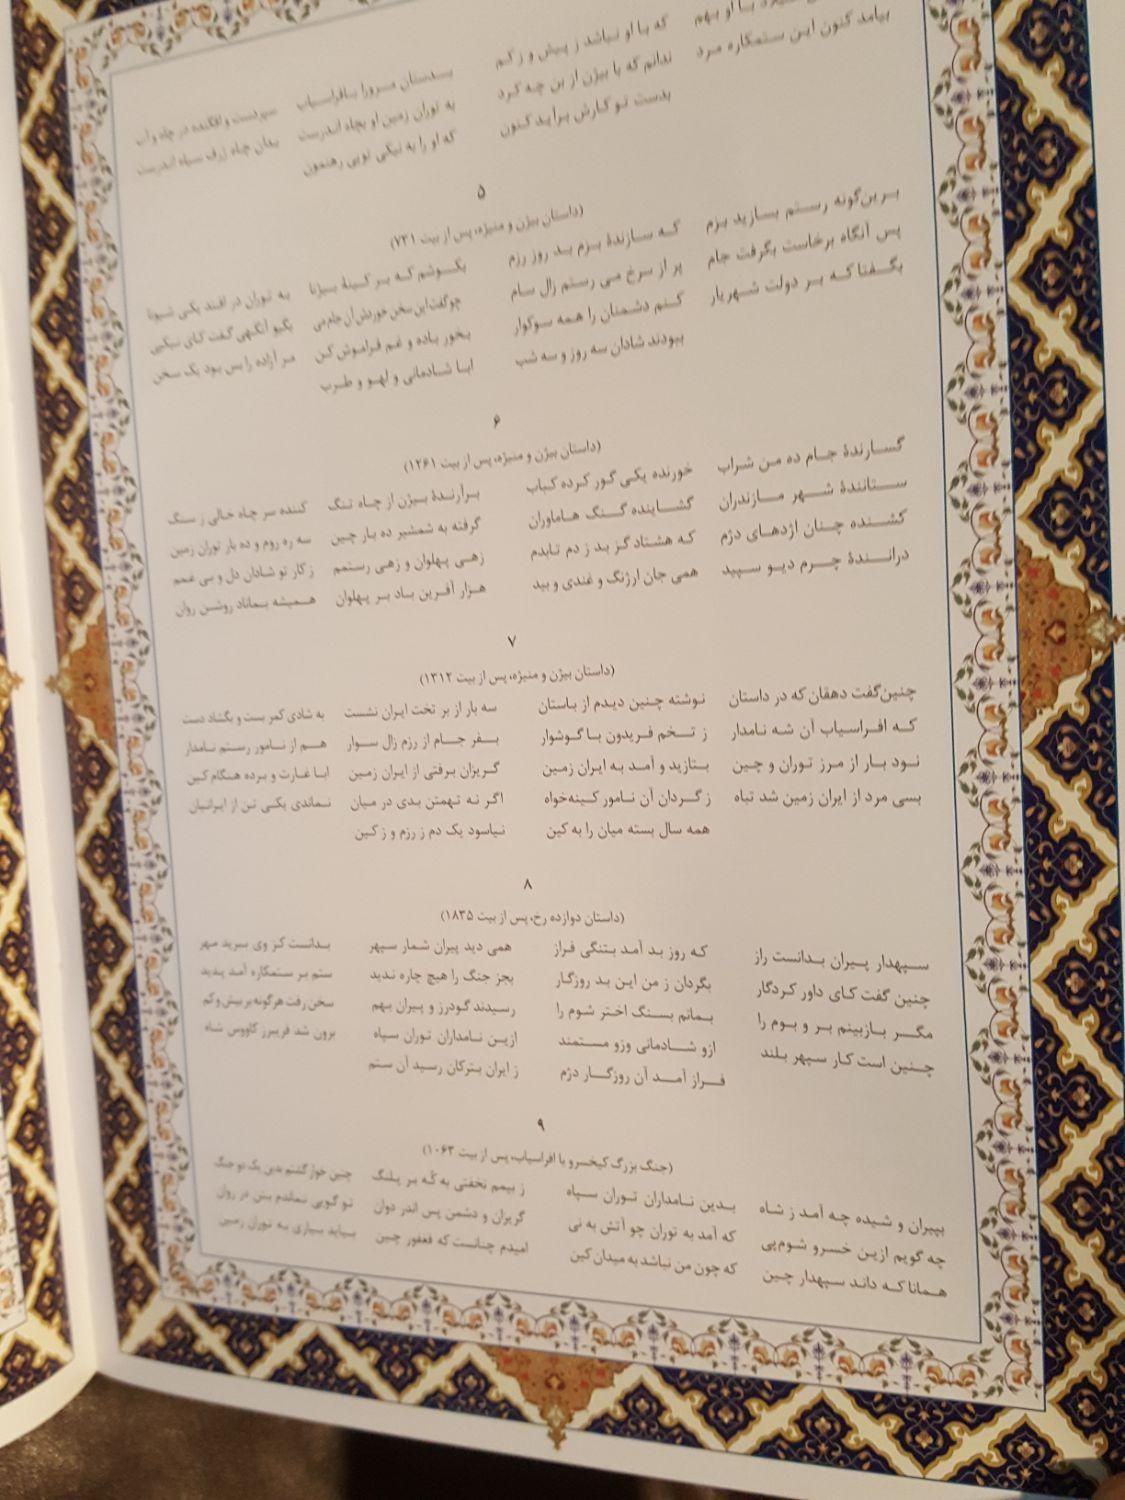 بیامد کنون این ستمکاره مرد که با او نباشد ز پیش و ز کم بدستان مرورا بافراسیاب سپردست و افکنده در چاه و آب
ندانم که با بیژن از بن چه کرد به توران زمین او بچاه اندرست بدان چاه ژرف سیاه اندرست
بدست تو کارش برآید کنون که او را به نیکی تویی رهنمون
۵
(داستان بیژن و منیژه، پس از بیت ۷۳۱)
برین‌گونه رستم بسازید بزم که سازندهٔ بزم بد روز رزم بکوشم که بر کینهٔ بیژنا به توران در افتد یکی شیونا
پس آنگاه برخاست بگرفت جام پر از سرخ می رستم زال سام چو گفت این سخن خوردش آن جام می بگیو آنگهی گفت کای نیکپی
بگفتا که بر دولت شهریار کنم دشمنان را همه سوگوار بخور باده و غم فراموش کن مر آزاده را بس بود یک سخن
ببودند شادان سه روز و سه شب ابا شادمانی و لهو و طرب
۶
(داستان بیژن و منیژه، پس از بیت ۱۲۶۱)
گسارندهٔ جام ده من شراب خورنده یکی گور کرده کباب برآرندهٔ بیژن از چاه تنگ کننده سر چاه خالی ز سنگ
ستانندهٔ شهر مازندران گشاینده گنگ هاماوران گرفته به شمشیر ده بار چین سه ره روم و ده بار توران زمین
کشنده چنان اژدهای دژم که هشتاد گز بد ز دم تابدم زهی پهلوان و زهی رستمم ز کار تو شادان دل و بی غمم
درانندهٔ چرم دیو سپید همی جان ارژنگ و غندی و بید هزار آفرین باد بر پهلوان همیشه بماناد روشن روان
۷
(داستان بیژن و منیژه، پس از بیت ۱۳۱۲)
چنین‌گفت دهقان که در داستان نوشته چنین دیدم از باستان سه بار از بر تخت ایران نشست به شادی کمر بست و بگشاد دست
که افراسیاب آن شه نامدار ز تخم فریدون با گوشوار بفر جام از رزم زال سوار هم از نامور رستم نامدار
نود بار از مرز توران و چین بتازید و آمد به ایران زمین گریزان برفتی از ایران زمین ابا غارت و برده هنگام کین
بسی مرد از ایران زمین شد تباه ز گردان آن نامور کینه‌خواه اگر نه تهمتن بدی در میان نماندی یکی تن از ایرانیان
همه سال بسته میان را به کین نیاسود یک دم ز رزم و ز کین
۸
(داستان دوازده رخ، پس از بیت ۱۸۳۵)
سپهدار پیران بدانست راز که روز بد آمد بتنگی فراز همی دید پیران شمار سپهر بدانست کز وی ببرید مهر
چنین گفت کای داور کردگار بگردان ز من این بد روزگار بجز جنگ را هیچ چاره ندید ستم بر ستمکاره آمد پدید
مگر بازبینم بر و بوم را بمانم بسنگ اختر شوم را رسیدند گودرز و پیران بهم سخن رفت هرگونه بر بیش و کم
چنین است کار سپهر بلند ازو شادمانی وزو مستمند ازین نامداران توران سپاه برون شد فریبرز کاووس شاه
فراز آمد آن روزگار دژم ز ایران بترکان رسید آن ستم
۹
(جنگ بزرگ کیخسرو با افراسیاب، پس از بیت ۱۰۶۳)
بپیران و شیده چه آمد ز شاه بدین نامداران توران سپاه ز بیمم نخفتی به کُه بر پلنگ چنین خوار گشتم بدین یک دو جنگ
چه گویم ازین خسرو شوم‌پی که آمد به توران چو آتش به نی گریزان و دشمن پس اندر دوان تو گویی نماندم بتن در روان
همانا که داند سپهدار چین که چون من نباشد به میدان کین امیدم چنانست که فغفور چین بیاید بیاری به توران زمین